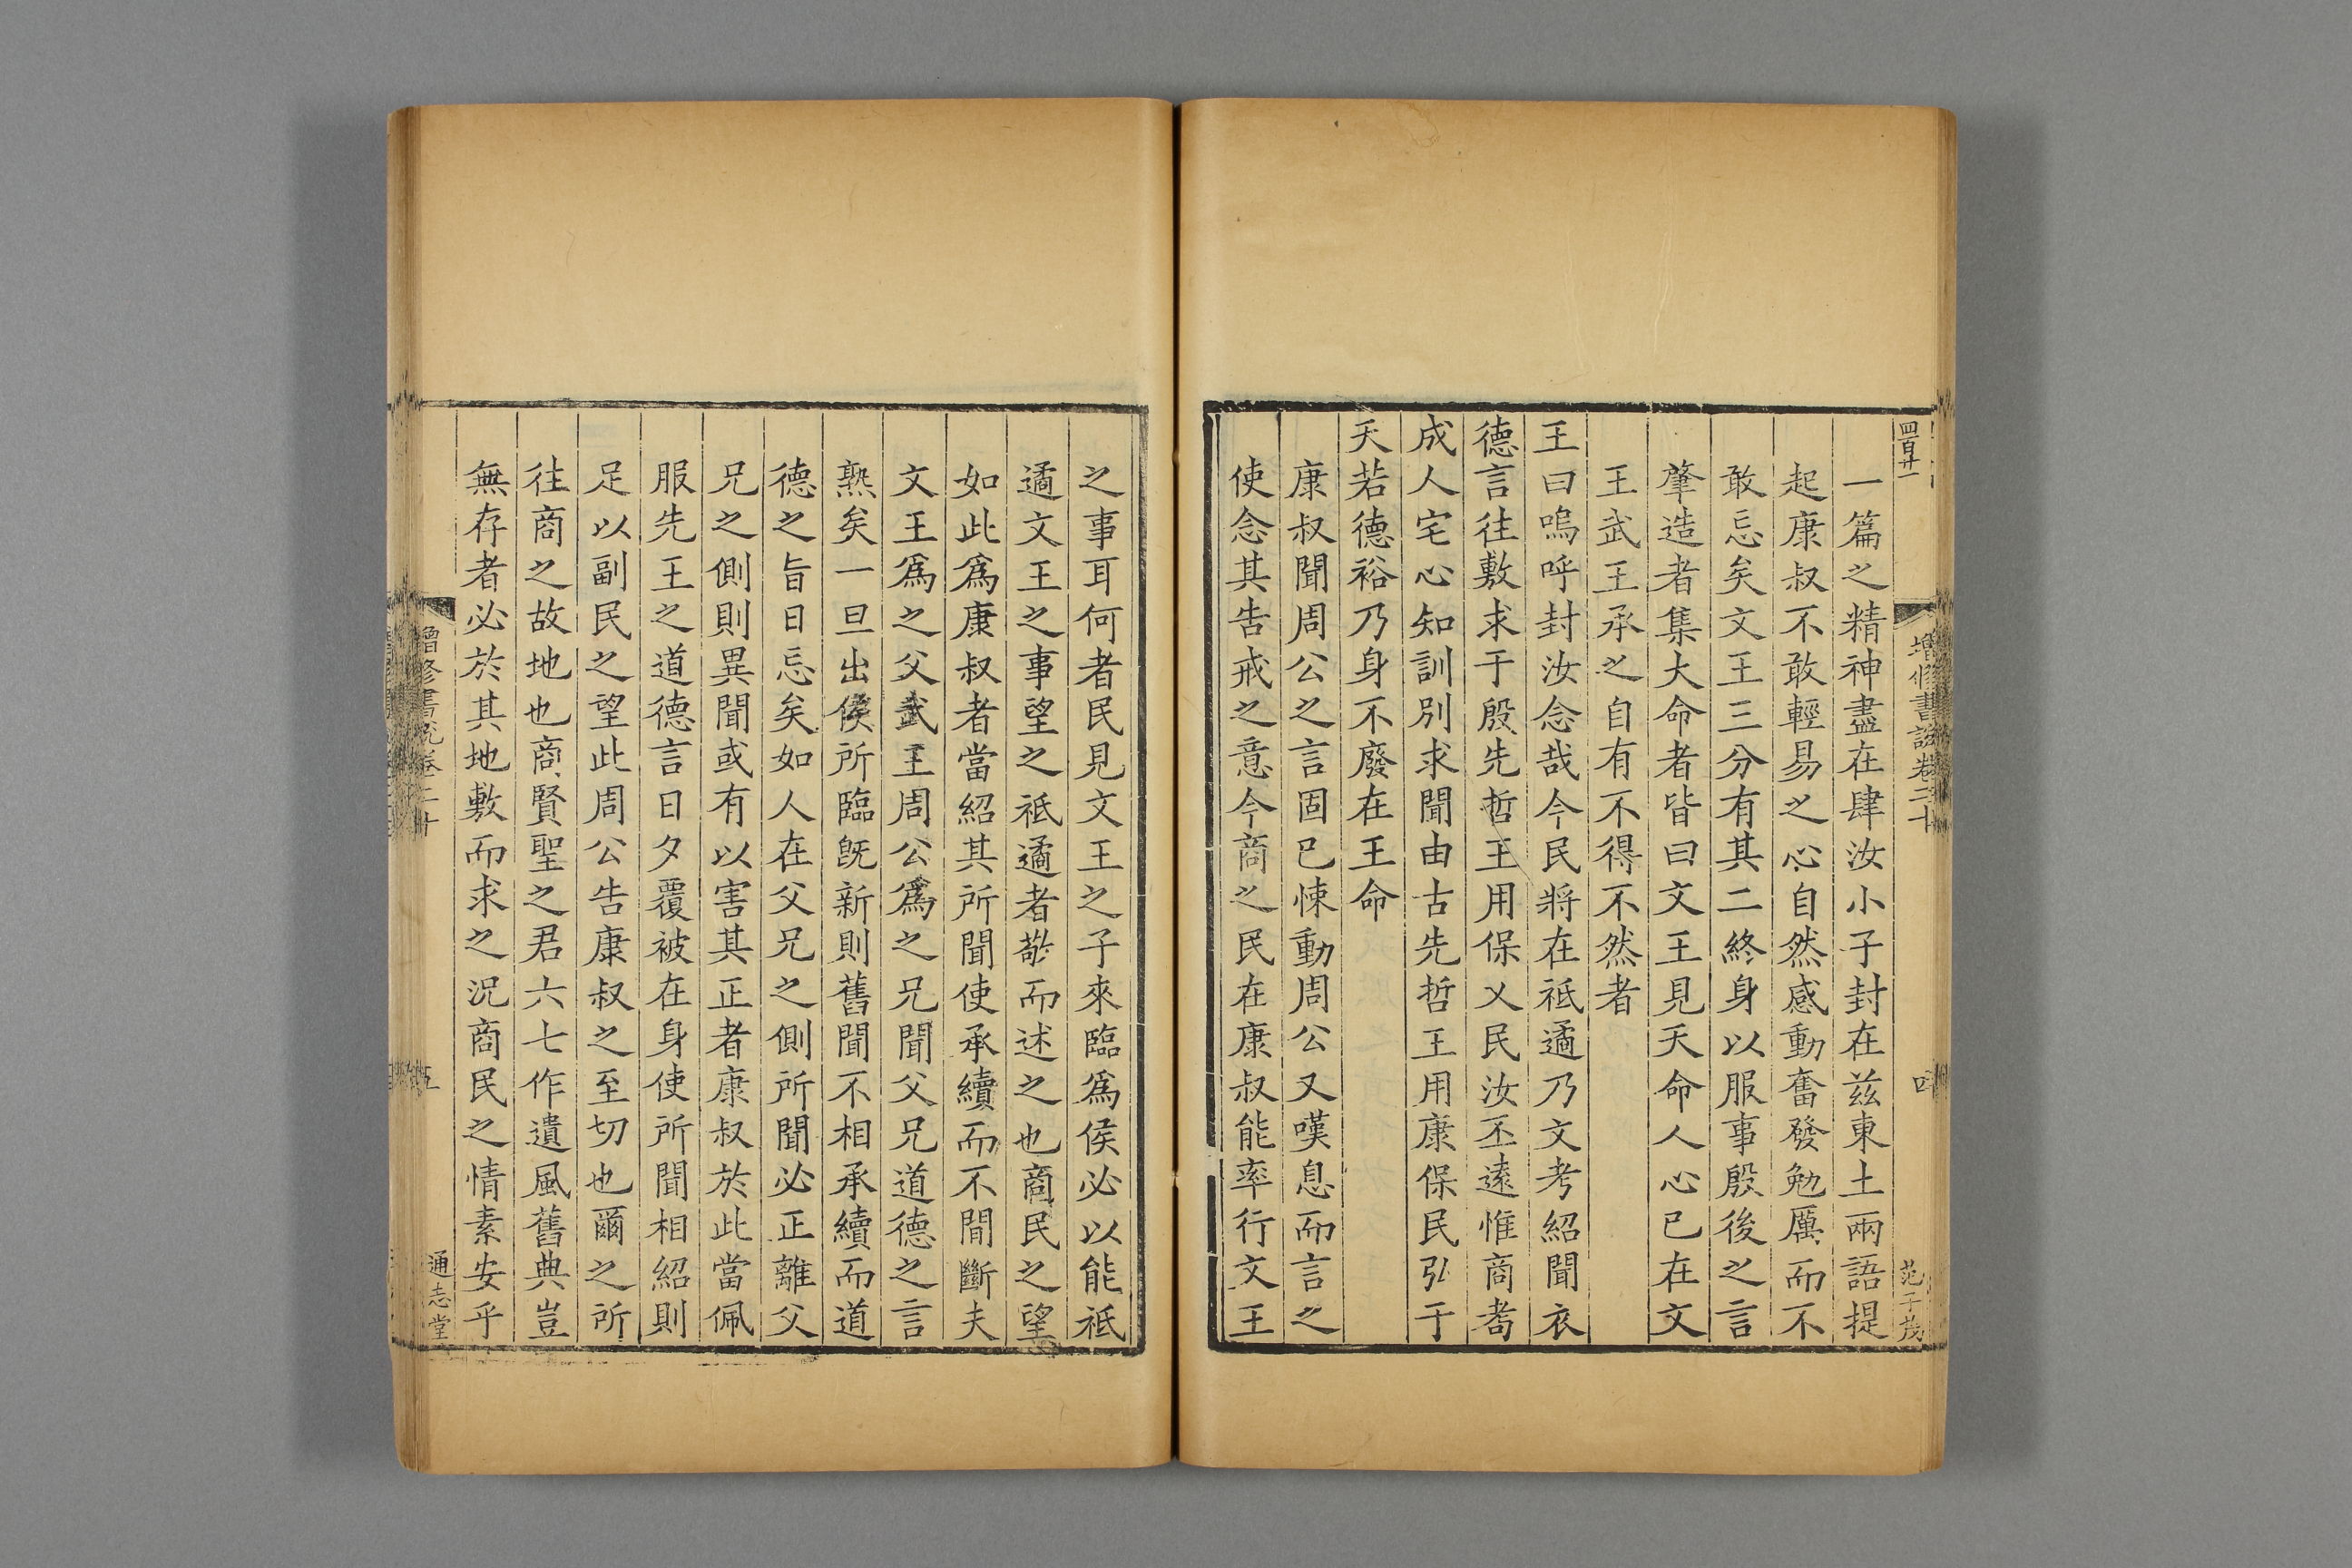 四百廿一
增修書說卷二十
四
范子茂
一篇之精神盡在肆汝小子封在茲東土兩語提
起康叔不敢輕易之心自然感動奮發勉厲而不
敢忘矣文王三分有其二終身以服事殷後之言
肇造者集大命者皆曰文王見天命人心已在文
王武王承之自有不得不然者
王曰嗚呼封汝念哉今民將在祗遹乃文考紹聞衣
德言往敷求于殷先哲王用保乂民汝丕遠惟商耇
成人宅心知訓別求聞由古先哲王用康保民弘于
天若德裕乃身不廢在王命
康叔聞周公之言固已悚動周公又嘆息而言之
使念其告戒之意今商之民在康叔能率行文王
之事耳何者民見文王之子來臨爲侯必以能祗
遹文王之事望之祗遹者敬而述之也商民之望
如此爲康叔者當紹其所聞使承續而不間斷夫
文王爲之父武王周公爲之兄聞父兄道德之言
熟矣一旦出侯所臨旣新則舊聞不相承續而道
德之旨日忘矣如人在父兄之側所聞必正離父
兄之側則異聞或有以害其正者康叔於此當佩
服先王之道德言日夕覆被在身使所聞相紹則
足以副民之望此周公告康叔之至切也爾之所
往商之故地也商賢聖之君六七作遺風舊典豈
無存者必於其地敷而求之況商民之情素安乎
增修書說卷二十
五
通志堂